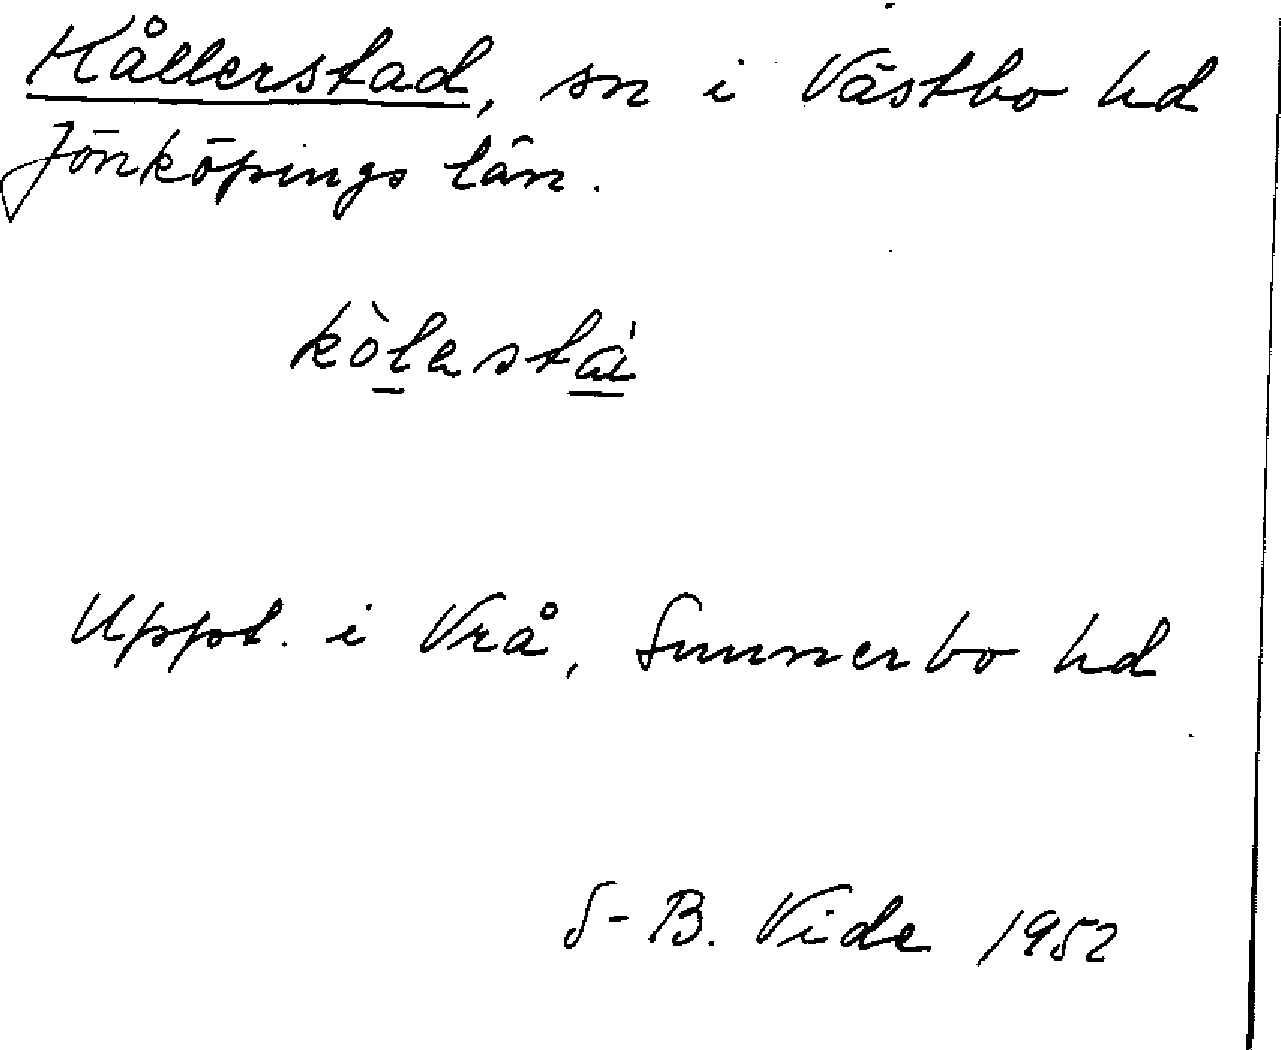 Kållerstad, sn i Västbo hd
Jönköpings län.
kòlastá
Uppt. i Vrå, Sunnerbo hd
S-B. Vide 1952